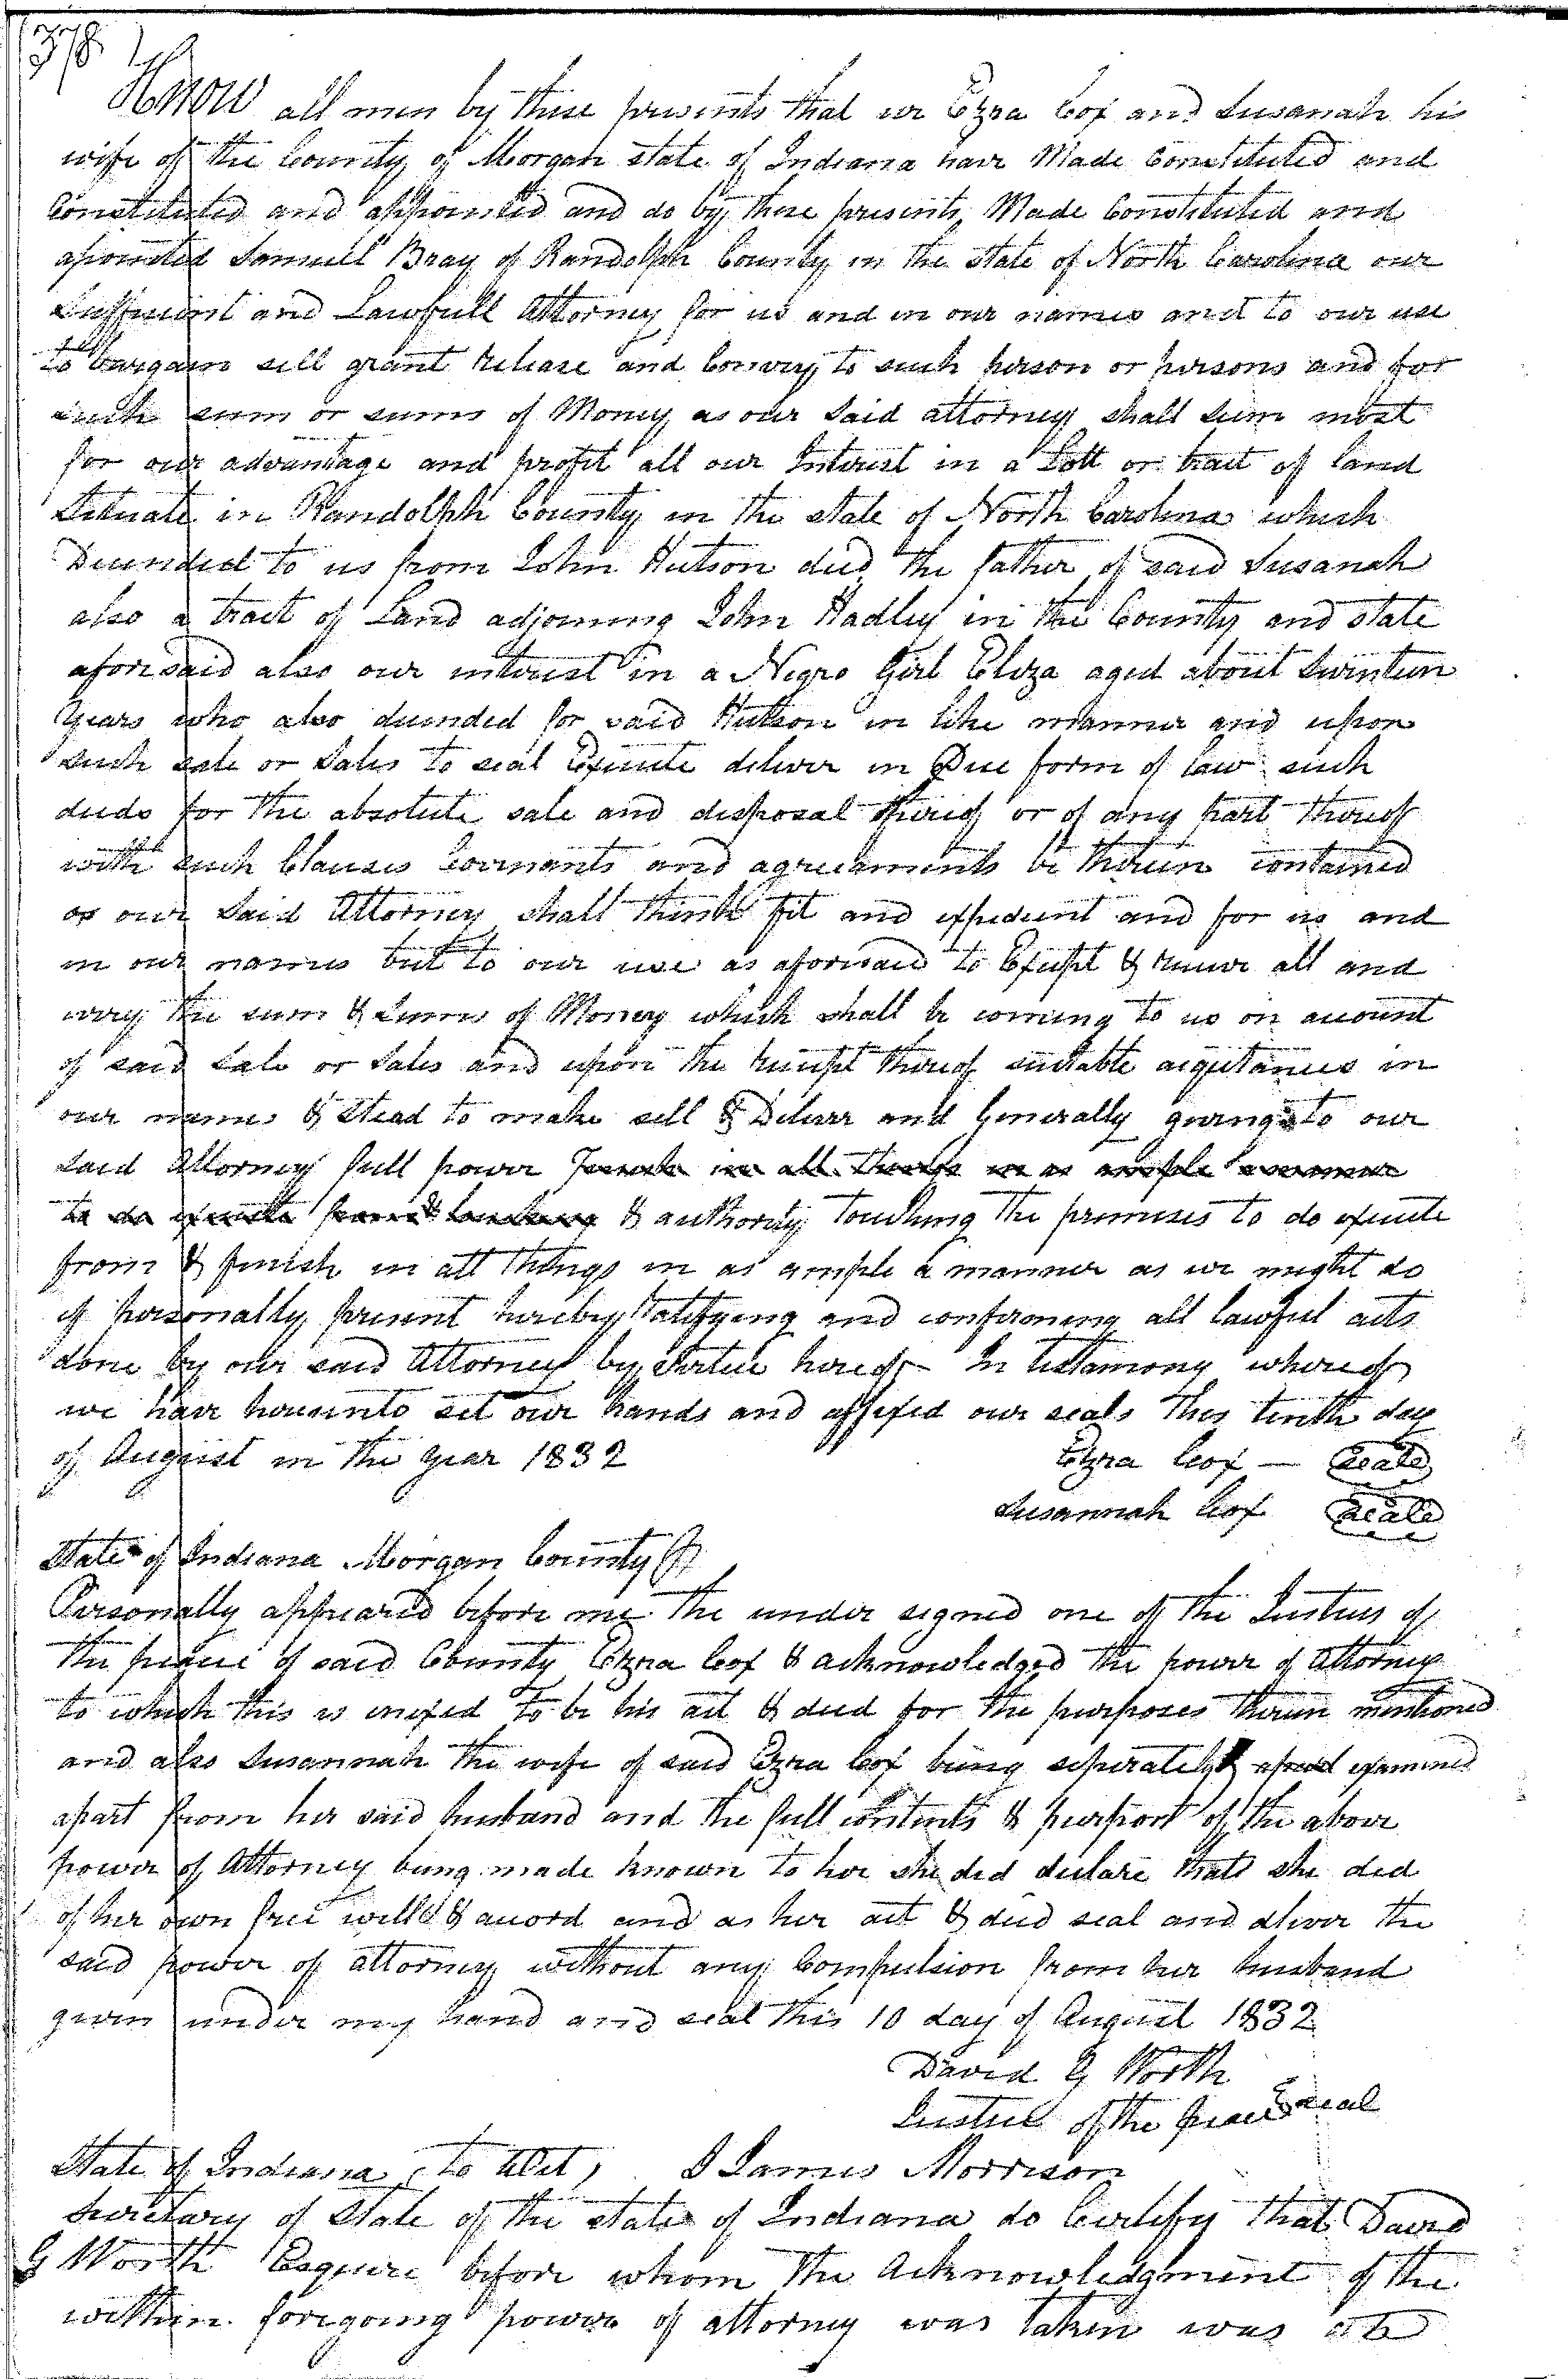 378
Know all men by these presents that we Ezra Cox and Susanah his
wife of the County of Morgan state of Indiana have Made Constituted and
Constituted and appointed and do by these presents Made Constituted and
apointed Samuell Bray of Randolph County in the State of North Carolina our
Sufficient and Lawfull Attorney for us and in our names and to our use
to bargain sell grant Release and Convey to such person or persons and for
such sum or sums of Money as our Said attorney shall Seem most
for our advantage and profit all our Interest in a Lott or tract of land
Situate in Randolph County in the state of North Carolina which
Decended to us from John Hutson decd the father of said Susanah
also a tract of Land adjoining John Hadley in the County and state
aforesaid also our interest in a Negro Girl Eliza aged about Seventeen
Years who also decended for said Hutson in like manner and upon
such sale or Sales to seal Execute deliver in Due form of law such
deeds for the absolute sale and disposal thereof or of any part thereof
with such Clauses Covenants and agreeaments be therein contained
as our Said Attorney shall think fit and expedient and for us and
in our names but to our use as aforesaid to Except & receive all and
every the sum & Sums of Money which shall be coming to us on account
of said Sale or Sales and upon the receipt thereof suitable acquitances in
our names & Stead to make sell & Deliver and Generally giveing to our
said Attorney full power in all things in as ample manner
to do execute & authority Touching the premises to do execute
from & finish in all things in as ample a manner as we might do
if personally present hereby Ratifying and confirming all lawful acts
done by our said Attorney by Virtue hereof - In testamony whereof
we have hereunto set our hands and affixed our seals This tenth day
of August in the year 1832
Ezra Cox — Seale
Susannah Cox Seale
State of Indiana Morgan County Ss
Personally appeared before me the under signed one of the Justices of
the peace of said County Ezra Cox & acknowledged the power of Attorney
to which this is anexed to be his act & deed for the purposes therein mentioned
and also Susannah the wife of said Ezra Cox being seperately apart examined
apart from her said husband and the full contents & purport of the above
power of Attorney being made known to her she did declare that she did
of her own free will & acord and as her act & deed seal and dliver the
said power of attorney without any Compulsion from her husband
given under my hand and seal this 10 day of August 1832
David G Worth
Justice of the peace seal
State of Indiana to Wit, I James Morrison
Secretary of State of the state of Indiana do Certify that David
G Worth Esquire before whom the Acknowledgment of the
within foregoing power of attorney was taken was at